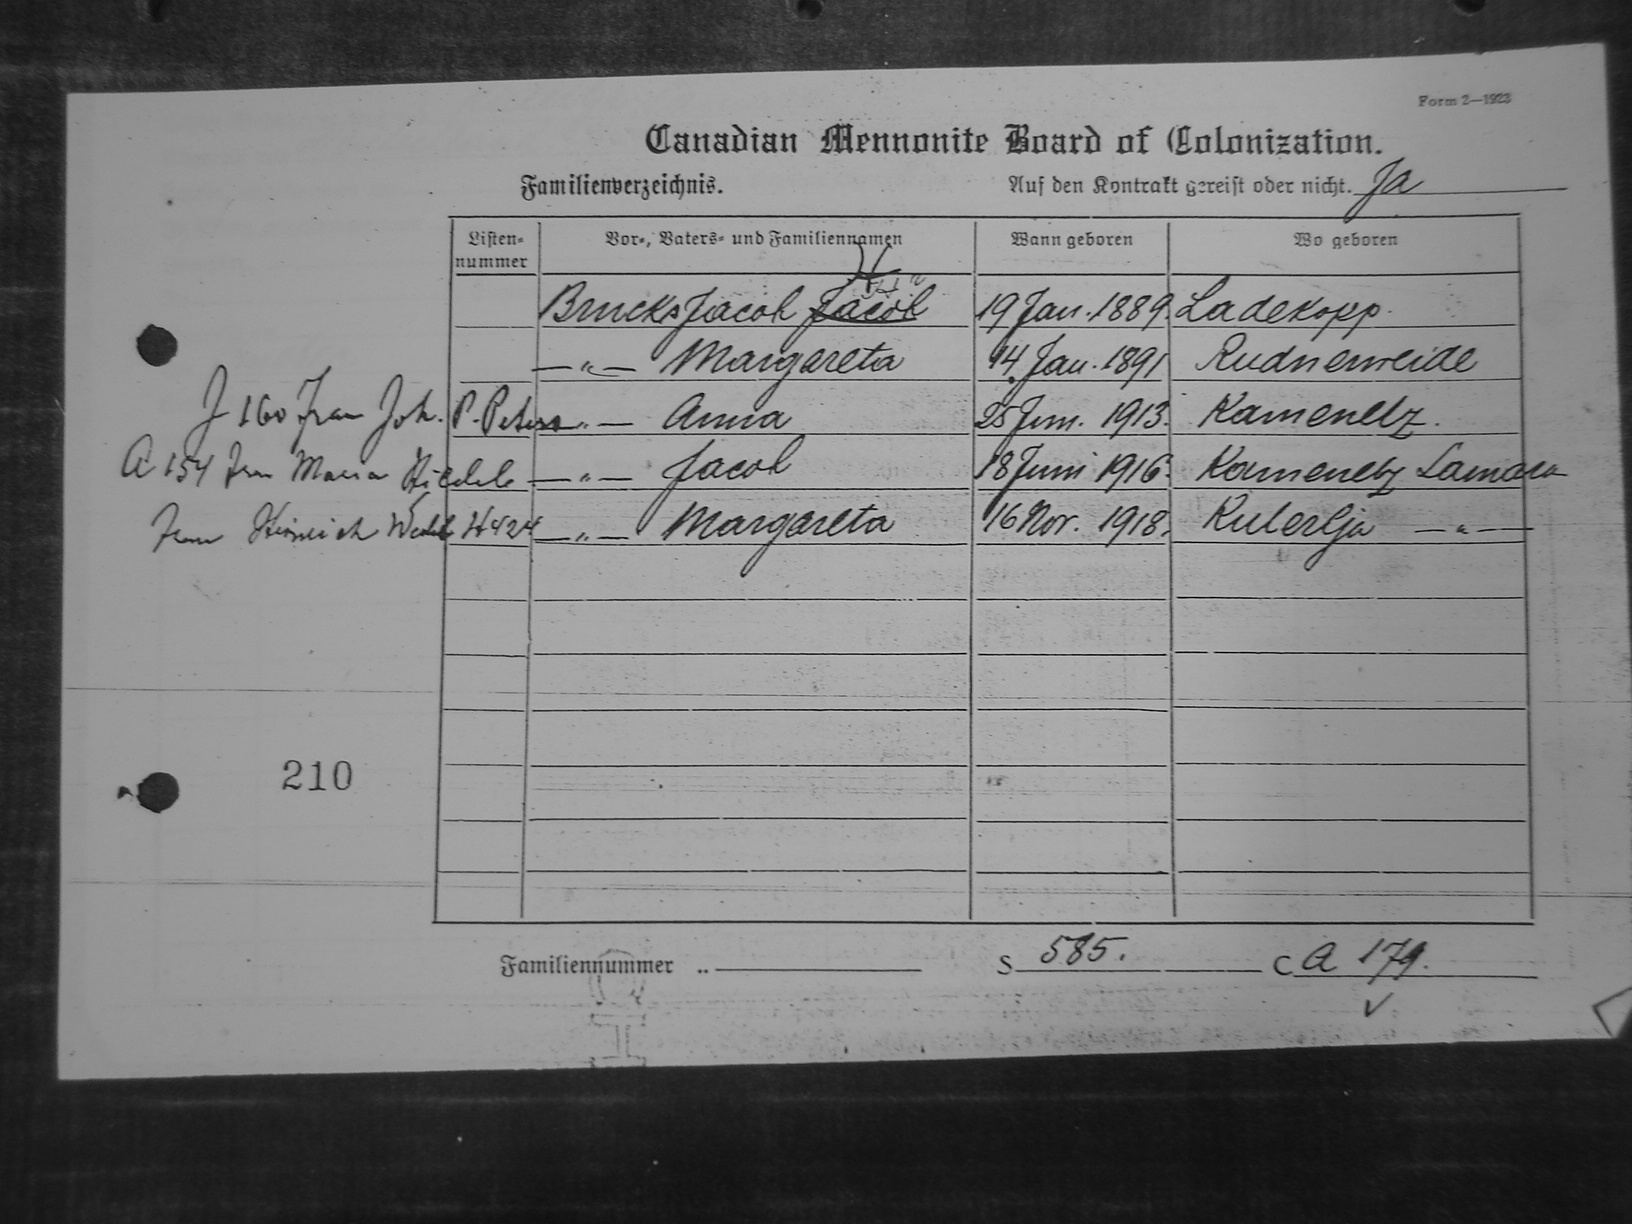 Form 2—1923
Canadian Mennonite Board of Colonization.
Familienverzeichnis. Auf den Kontrakt gereist oder nicht. Ja
Listen-nummer Vor-, Vaters- und Familiennamen Wann geboren Wo geboren
H
Brucks Jacob Jacob 19 Jan. 1889. Ladekopp.
—"— Margareta 14 Jan. 1891 Rudnerweide
J 160 Frau Joh. P. Peters —"— Anna 25 Jun. 1913. Kamenetz.
A 154 Frau Maria —"— Jacob 18 Juni 1916. Kamenetz Samara
Frau Heinrich H424 —"— Margareta 16 Nov. 1918. —"—
210
Familiennummer .. S 585. C A 179.